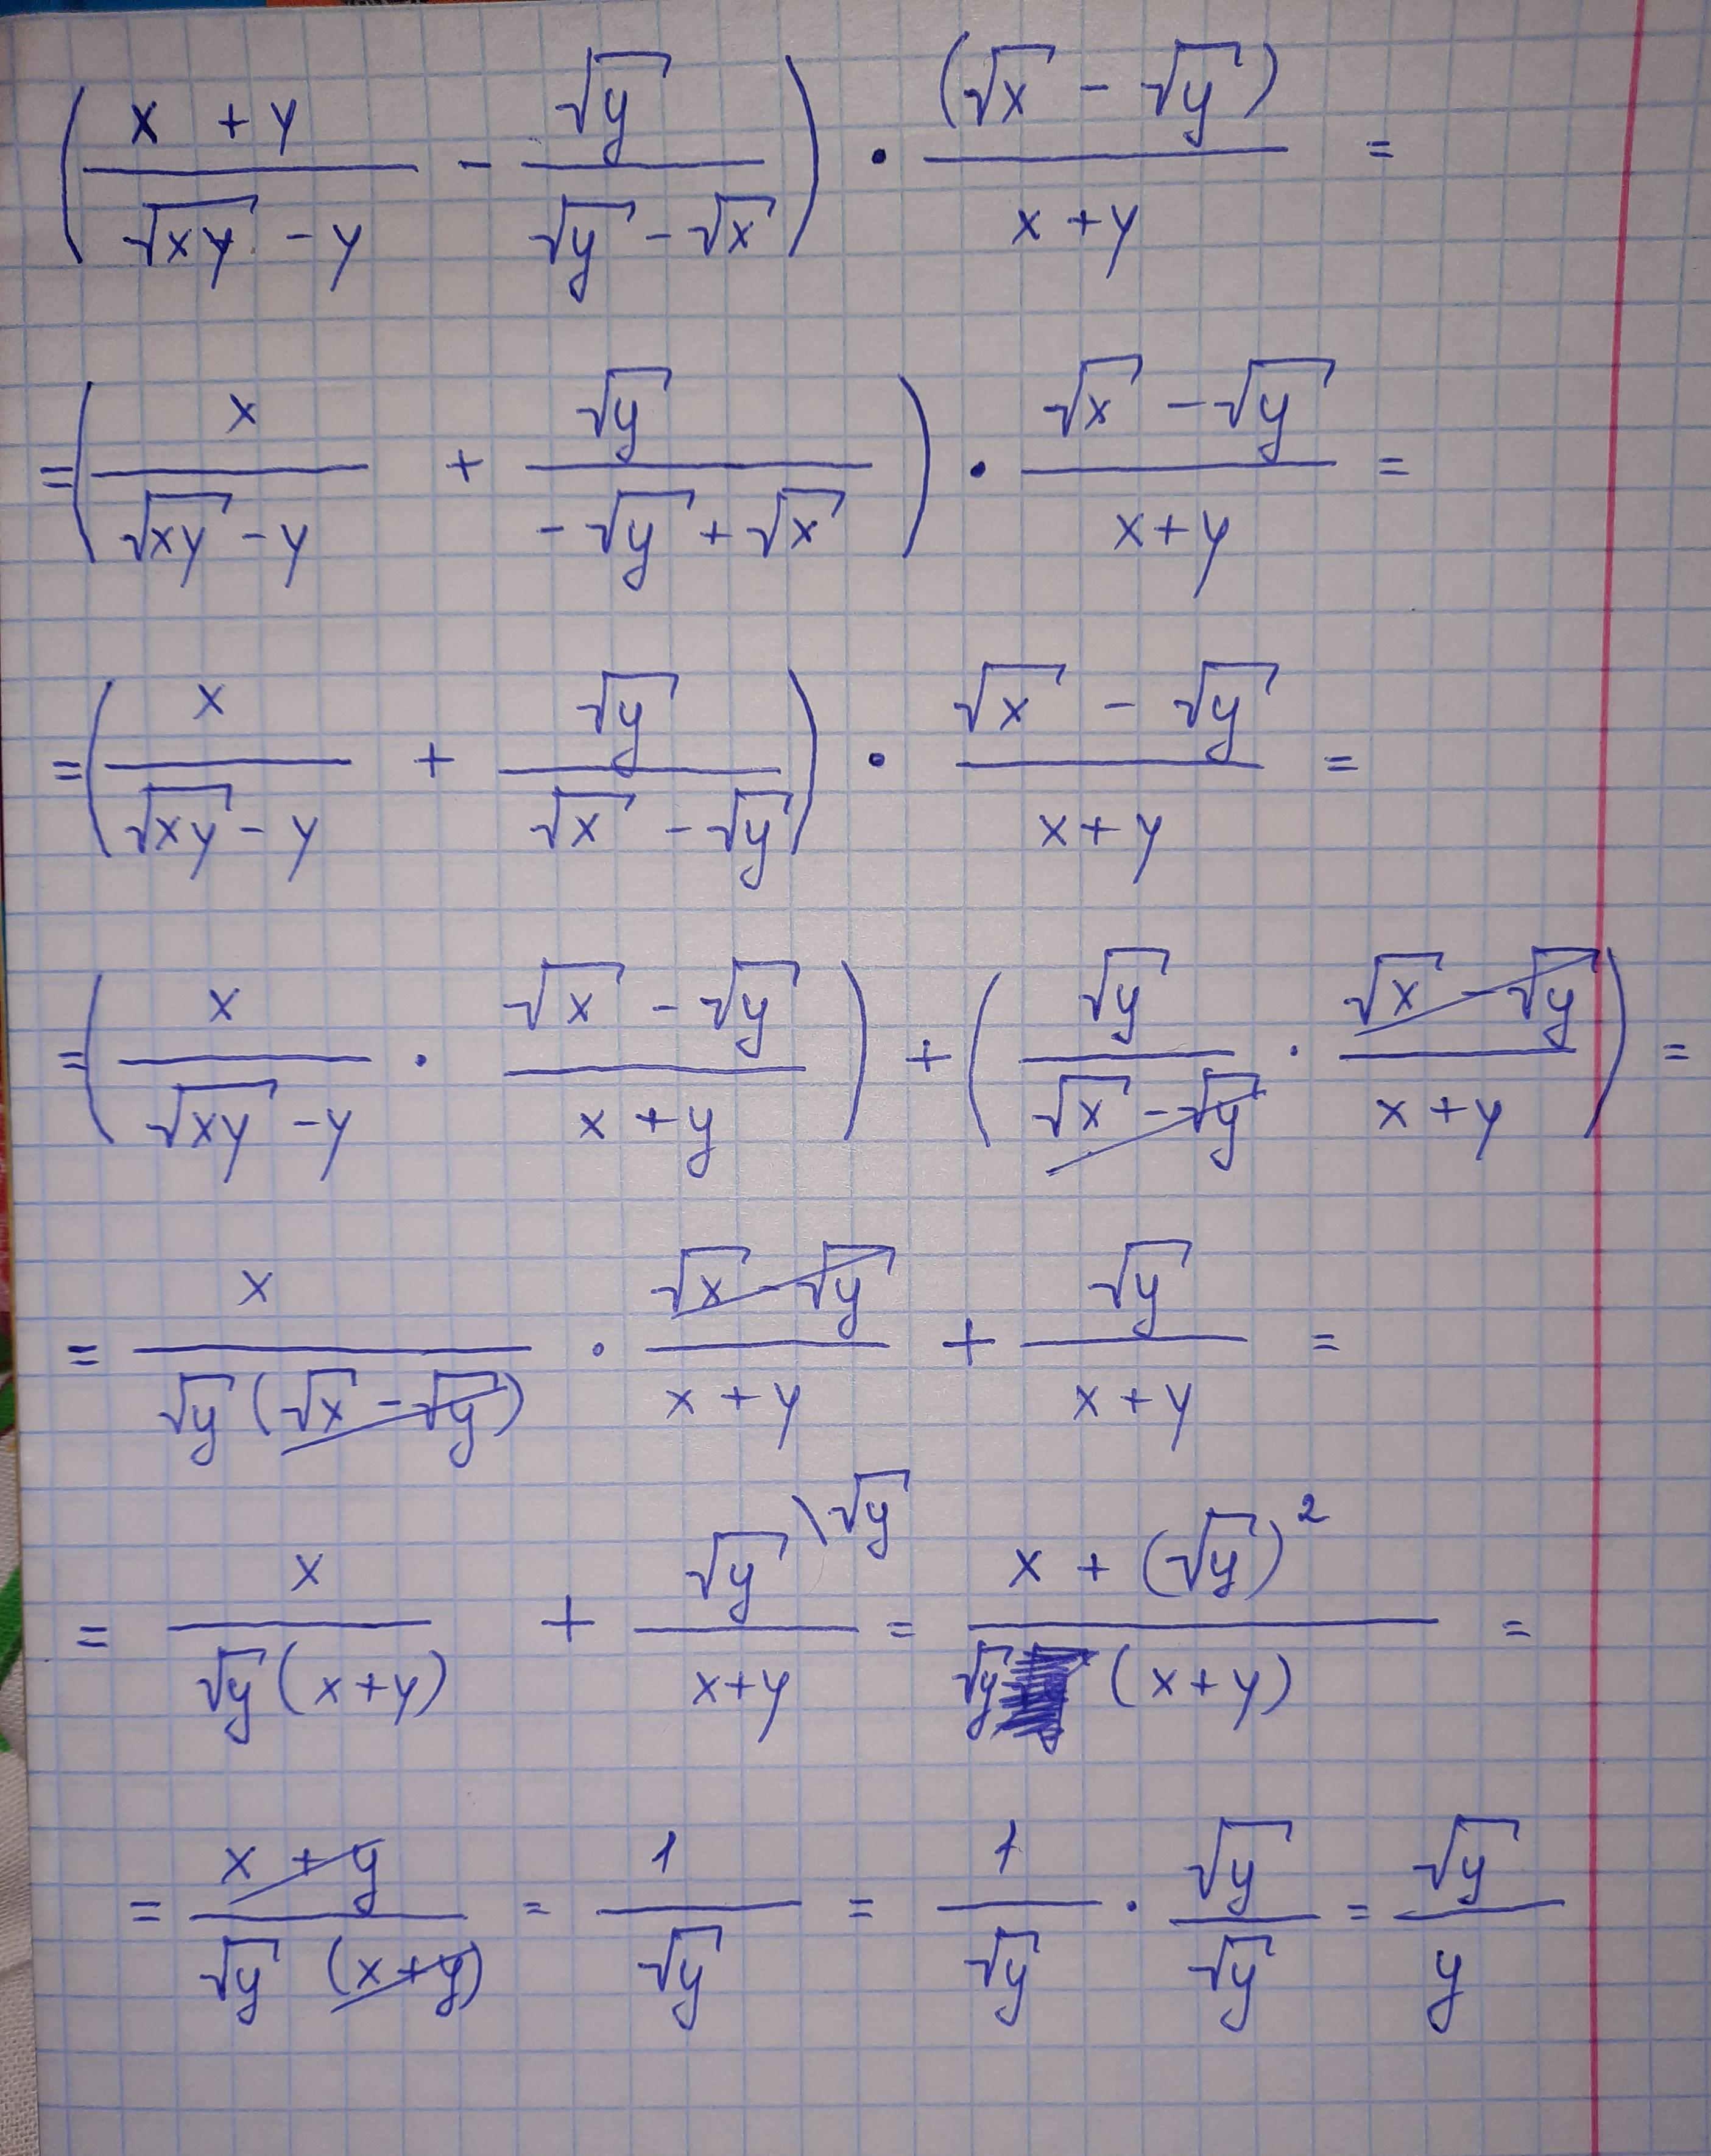 (x + y / √xy - y - √y / √y - √x) · (√x - √y) / x + y =
= (x / √xy - y + √y / -√y + √x) · √x - √y / x + y =
= (x / √xy - y + √y / √x - √y) · √x - √y / x + y =
= (x / √xy - y · √x - √y / x + y) + (√y / √x - √y · √x - √y / x + y) =
= x / √y (√x - √y) · √x - √y / x + y + √y / x + y =
= x / √y (x + y) + √y \√y / x + y = x + (√y)² / √y (x + y) =
= x + y / √y (x + y) = 1 / √y = 1 / √y · √y / √y = √y / y